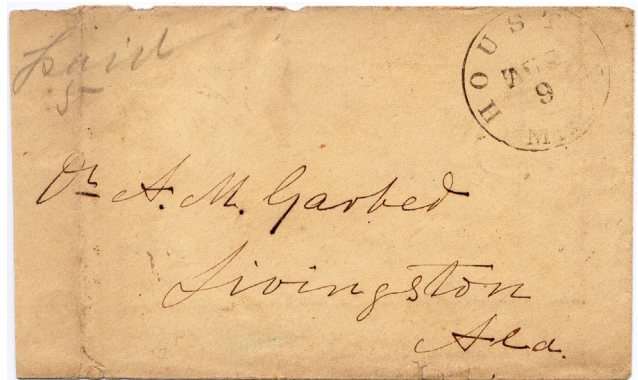 Paid
5
HOUST
AUG
9
MI
Dr A. M. Garber
Livingston
Ala.